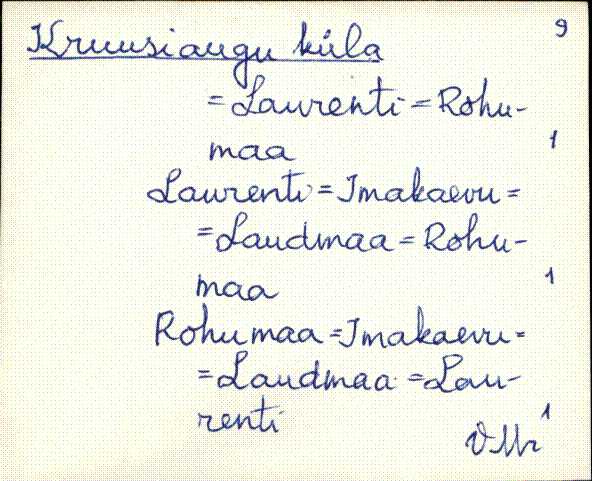 9
Kruusiaugu küla
=Laurenti=Rohu-
maa 1
Laurenti=Imakaevu=
=Laudmaa=Rohu-
maa 1
Rohumaa=Imakaevu=
=Laudmaa=Lau-
renti 1